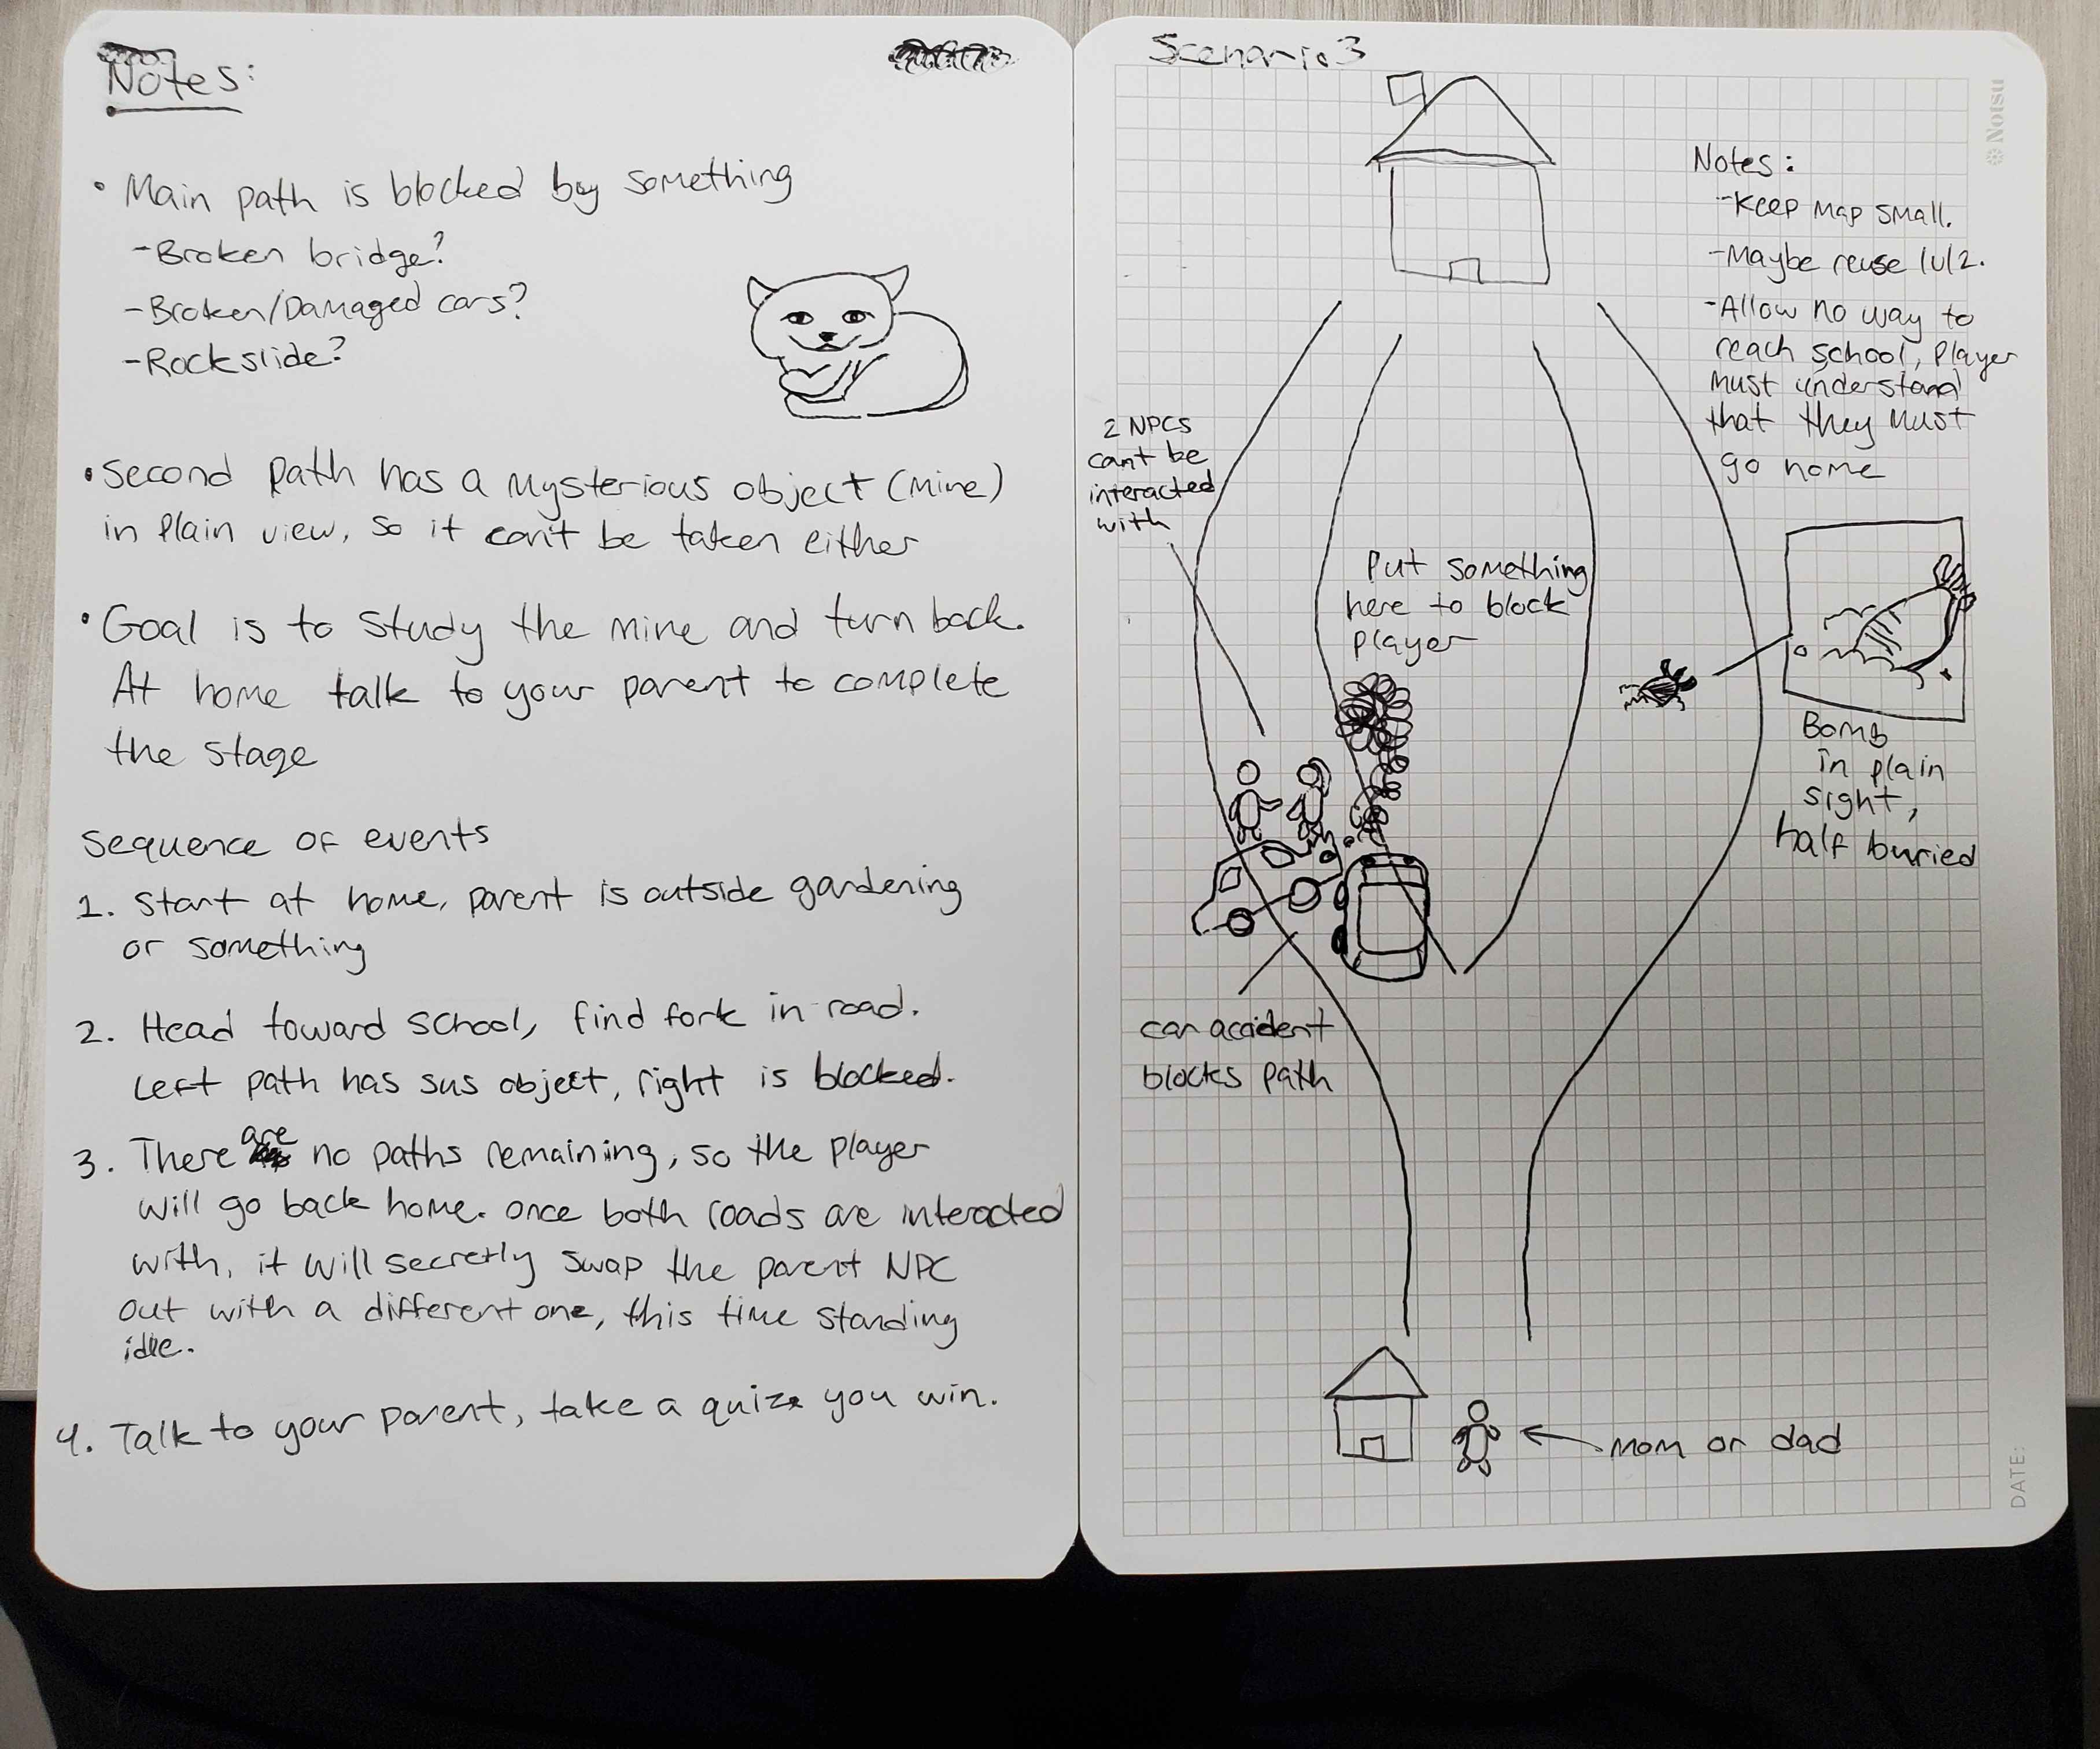 Notes:
• Main path is blocked by something
-Broken bridge?
-Broken/Damaged cars?
-Rockslide?
• Second path has a mysterious object (mine)
in plain view, so it can't be taken either
• Goal is to study the mine and turn back.
At home talk to your parent to complete
the stage
Sequence of events
1. Start at home, parent is outside gardening
or something
2. Head toward school, find fork in road.
Left path has sus object, right is blocked.
3. There are no paths remaining, so the player
will go back home. once both roads are interacted
with, it will secretly swap the parent NPC
out with a different one, this time standing
idle.
4. Talk to your parent, take a quiz you win.
Scenario 3
Notes:
-Keep map small.
-Maybe reuse lvl 2.
-Allow no way to
reach school, player
must understand
that they must
go home
2 NPCS
cant be
interacted
with
Put something
here to block
player
Bomb
in plain
sight,
half buried
car accident
blocks path
mom or dad
Notsu
DATE: